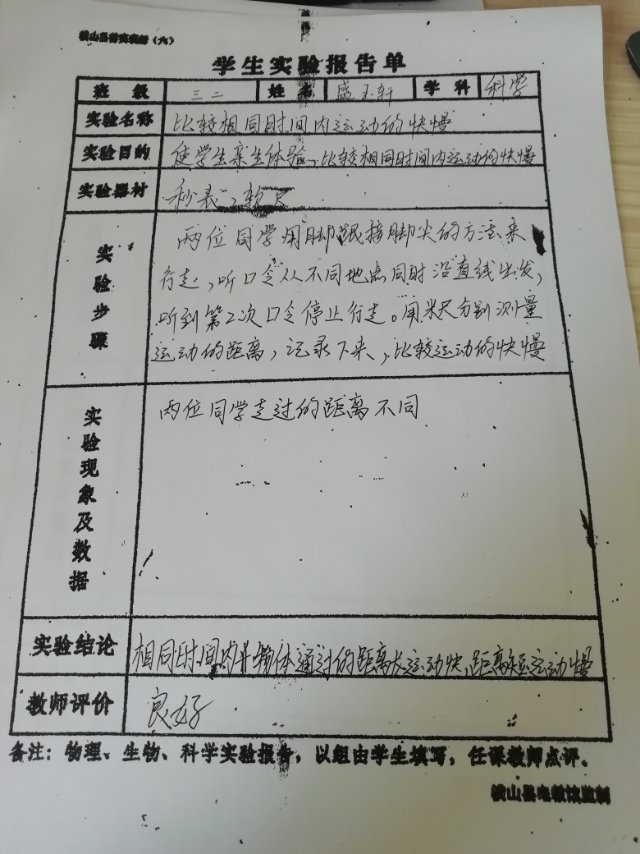 （六）
学生实验报告单
班 级 三二 姓 名 盛玉轩 学 科 科学
实验名称 比较相同时间内运动的快慢
实验目的 使学生亲生体验、比较相同时间内运动的快慢
实验器材 秒表、软尺
实验步骤
两位同学用脚跟接脚尖的方法来
行走，听口令从不同地点同时沿直线出发，
听到第2次口令停止行走。用米尺分别测量
运动的距离，记录下来，比较运动的快慢
实验现象及数据
两位同学走过的距离不同
实验结论 相同时间内物体通过的距离长运动快，距离短运动慢
教师评价 良好
备注：物理、生物、科学实验报告，以组由学生填写，任课教师点评。
横山县电教馆监制